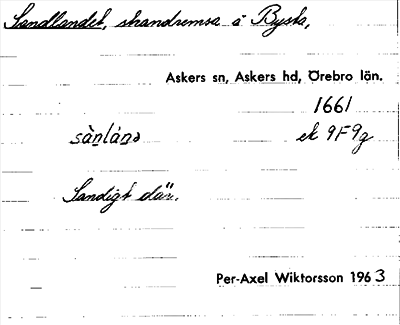 Sandlandet, strandremsa å Bysta,
Askers sn, Askers hd, Örebro län.
1661
sàṉláṉə ek 9F9g
Sandigt där.
Per-Axel Wiktorsson 1963